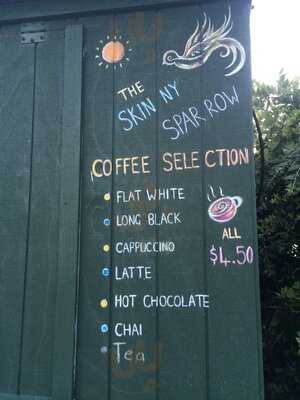 THE
SKINNY
SPARROW
COFFEE SELECTION
FLAT WHITE
LONG BLACK
CAPPUCCINO
LATTE
HOT CHOCOLATE
CHAI
Tea
ALL
$4.50